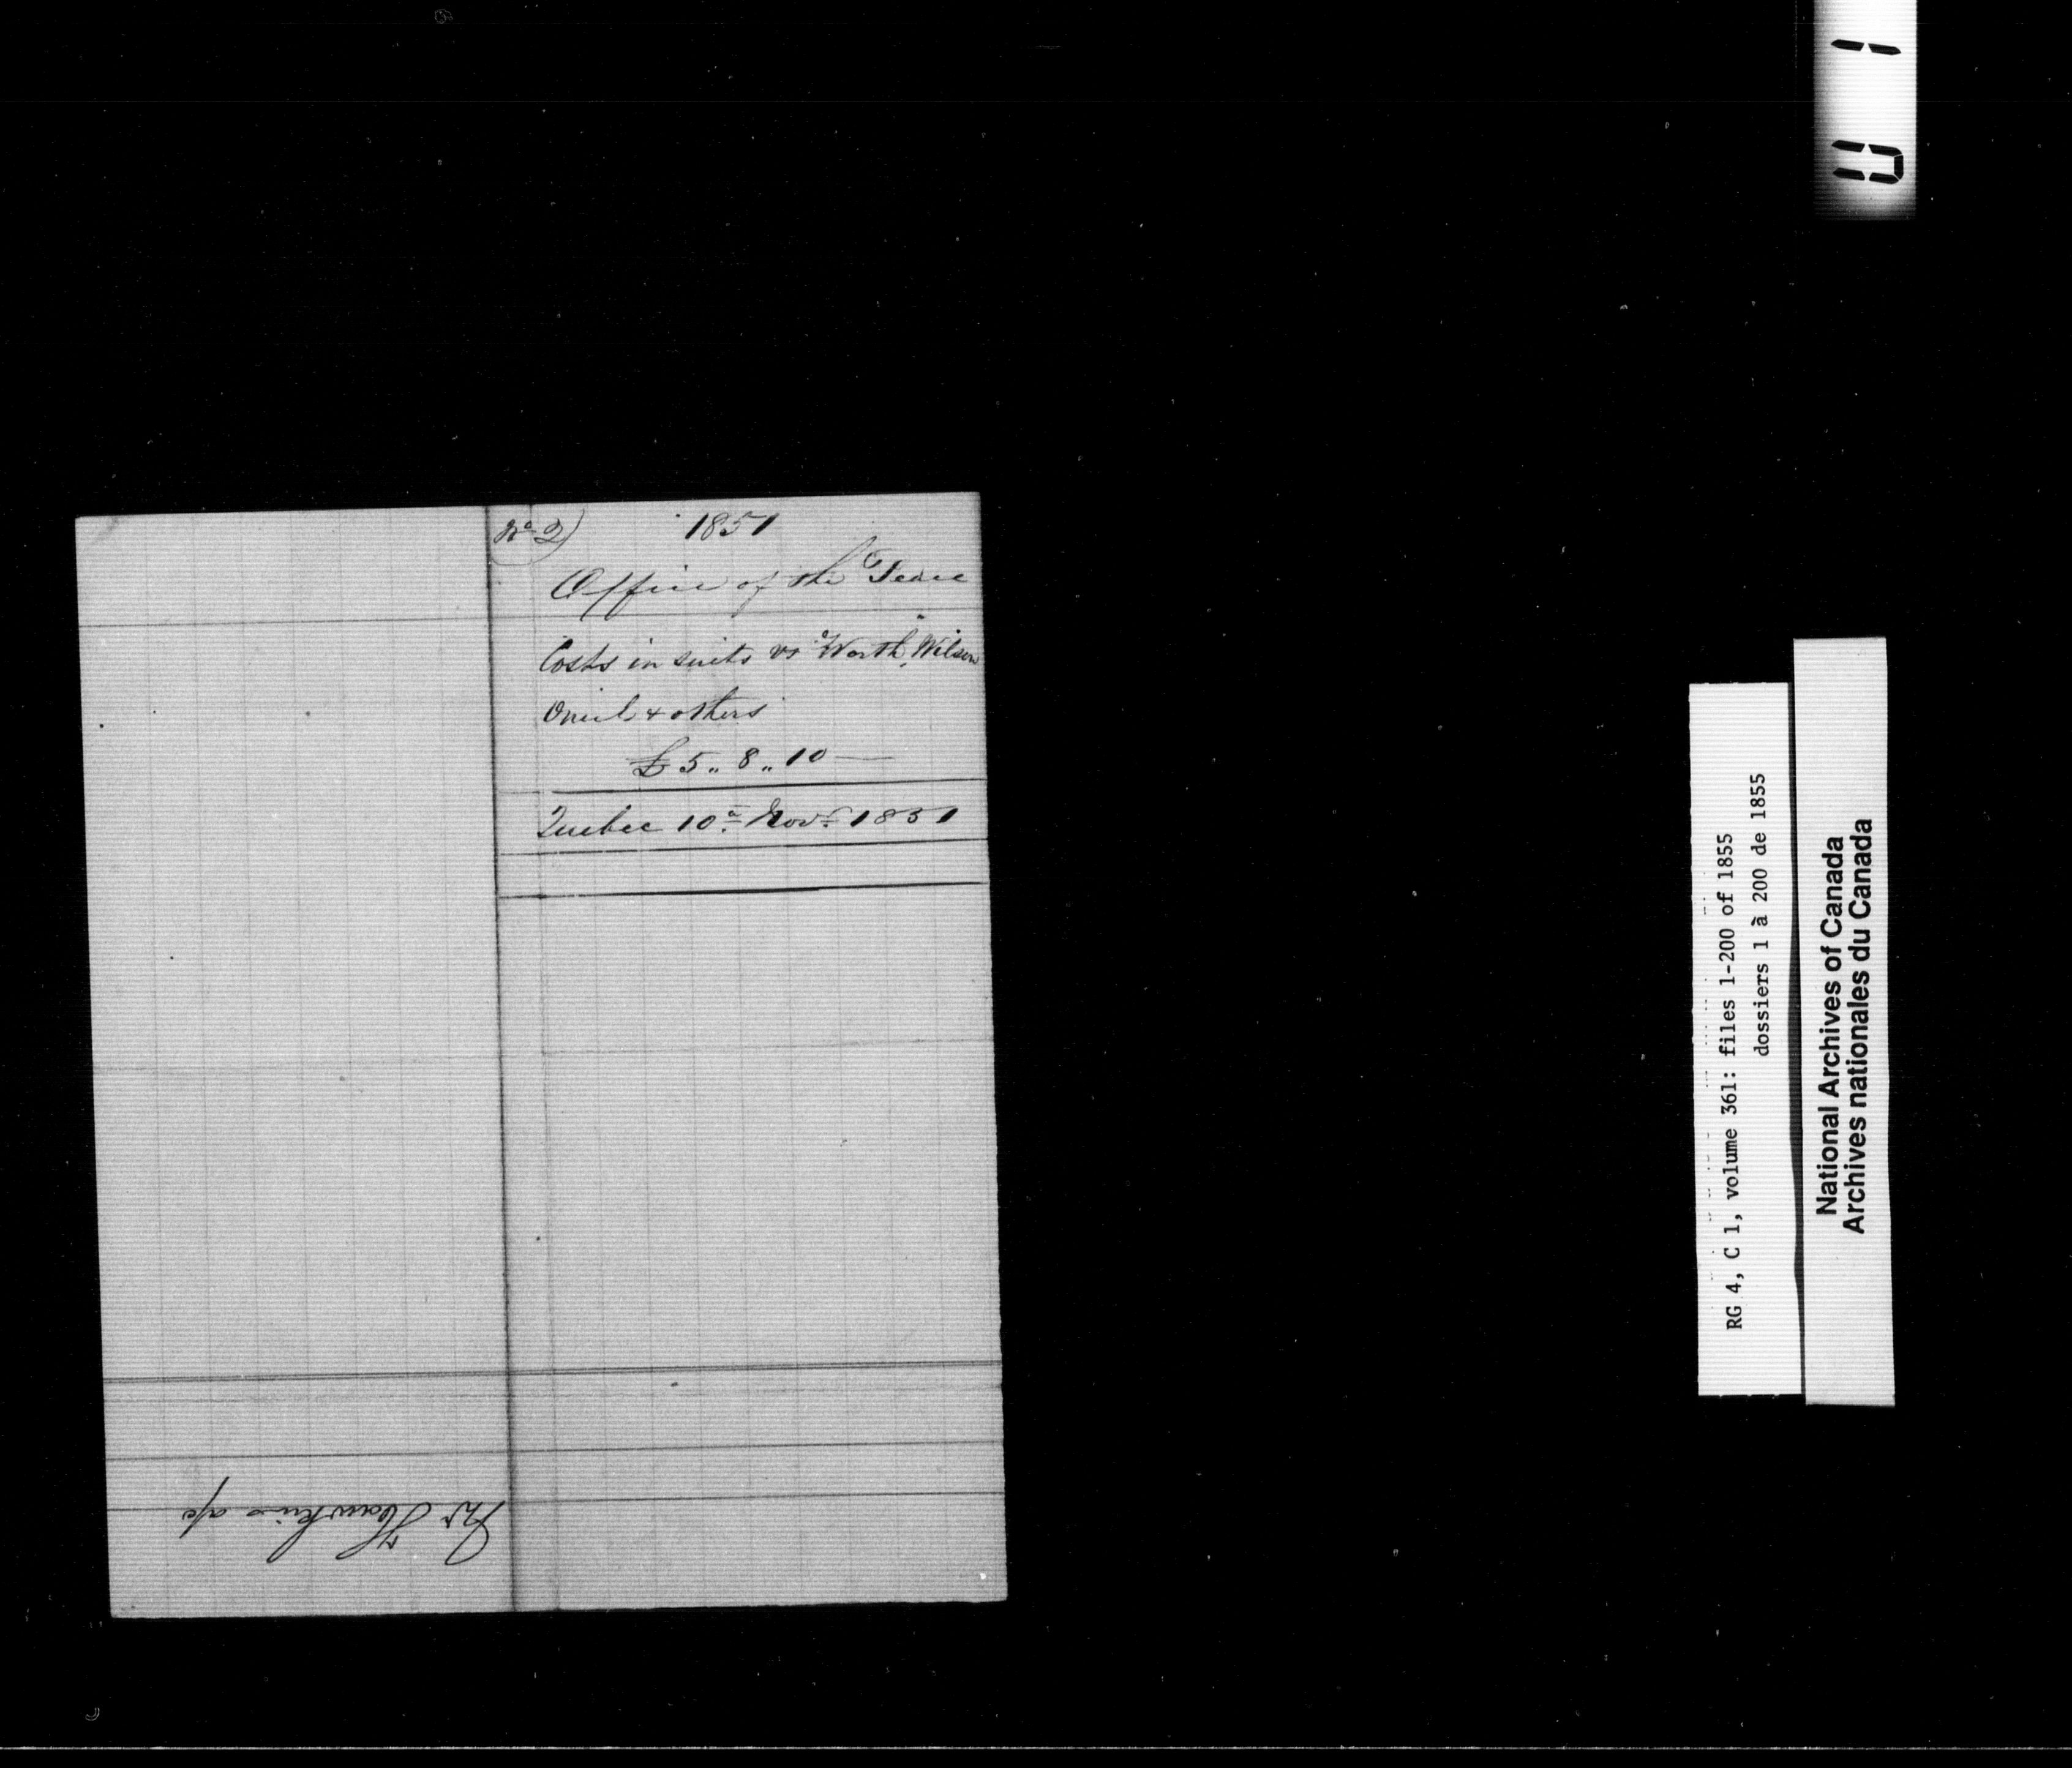 No 2)
1851
Office of the Peace
Costs in suits vs Worth, Wilson
Oneil & others
£ 5 .. 8 .. 10 —
Quebec 10th Novr 1851
Mr Hawkins a/c
RG 4, C 1, volume 361: files 1-200 of 1855
dossiers 1 à 200 de 1855
National Archives of Canada
Archives nationales du Canada